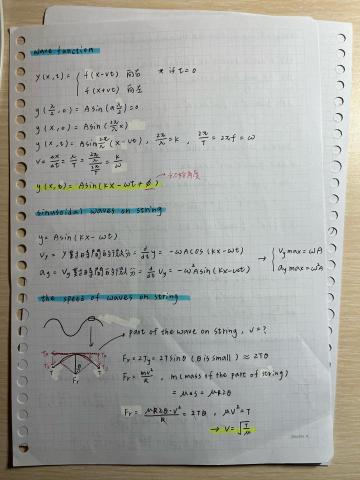 wave function
y(x,t) = { f(x-vt) 向右 * if t=0
f(x+vt) 向左
y(λ/2, 0) = A sin(a λ/2) = 0
y(x, 0) = A sin(2π/λ x)
y(x,t) = A sin 2π/λ (x-vt), 2π/λ = k, 2π/T = 2πf = ω
V = Δx/Δt = λ/T = (2π/T)/(2π/λ) = k/ω
y(x,t) = A sin(kx-ωt+φ) → 初始角度
sinusoidal waves on string
y = A sin(kx-ωt)
Vy = y對時間的微分 = d/dt y = -ωA cos(kx-ωt) → { Vy max = ωA
ay = Vy對時間的微分 = d/dt Vy = -ω²A sin(kx-ωt) ay max = ω²A
the speed of waves on string
part of the wave on string, v=?
Fr = 2Ty = 2T sinθ (θ is small) ≈ 2Tθ
Fr = mv²/R, m(mass of the part of string)
= μΔs = μR2θ
Fr = μR2θ·v²/R = 2Tθ, μV² = T
→ V = √T/μ